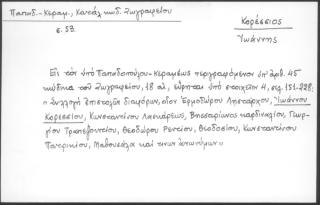 Παπαδ.-Κεραμ., Κατάλ. κωδ. Ζωγραφείου
σ. 57.
Κορέσσιος
Ἰωάννης
Εἰς τὸν ὑπὸ Παπαδοπούλου-Κεραμέως περιγραφόμενον ὑπ' ἀριθ. 45
κώδικα τοῦ Ζωγραφείου, 18 αἰ., εὕρηται ὑπὸ στοιχεῖον 4, σελ. 151-228:
"Συλλογὴ ἐπιστολῶν διαφόρων, οἷον Ἑρμοδώρου Λῃστάρχου, Ἰωάννου
Κορεσσίου, Κωνσταντίνου Λασκάρεως, Βησσαρίωνος καρδιναλίου, Γεωρ-
γίου Τραπεζουντίου, Θεοδώρου Ρεντίου, Θεοδοσίου, Κωνσταντίνου
Πατρικίου, Μαθουσάλα καὶ τινων ἀνωνύμων"